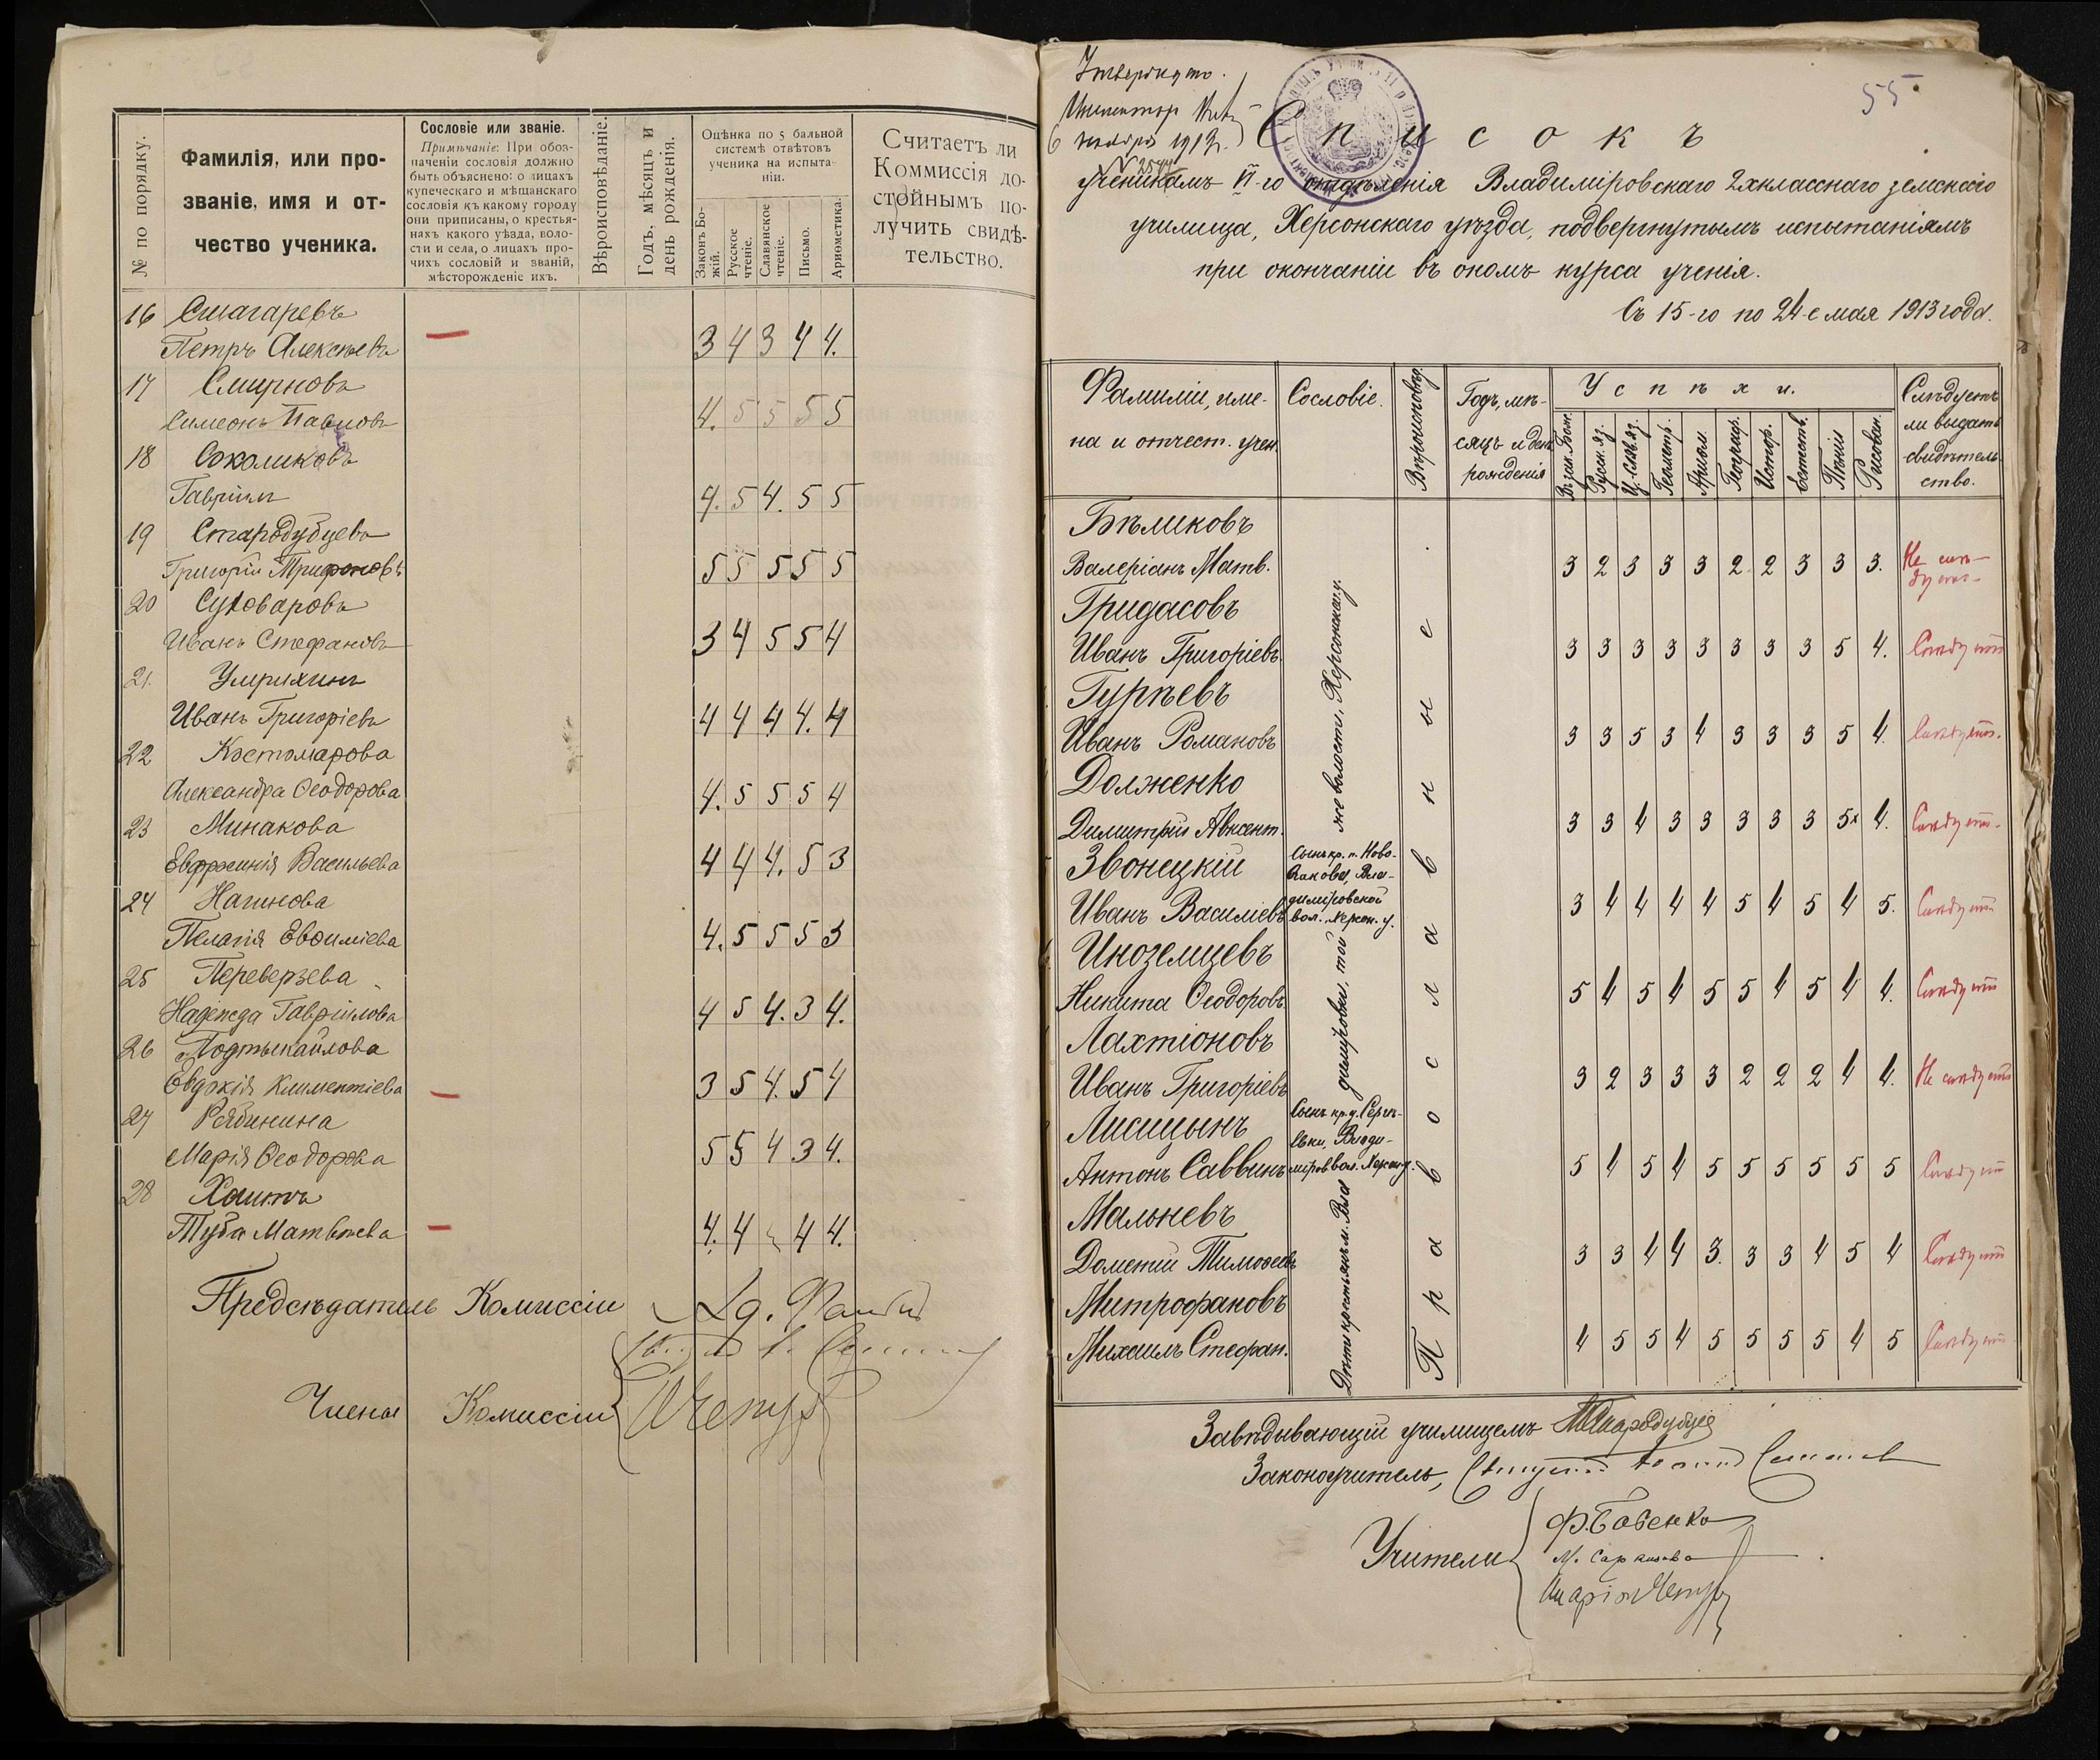 № по порядку.
Фамилія, или про-
званіе, имя и от-
чество ученика.
Сословіе или званіе.
Примѣчаніе: При обоз-
наченіи сословія должно
быть объяснено: о лицахъ
купеческаго и мѣщанскаго
сословія къ какому городу
они приписаны, о крестья-
нахъ какого уѣзда, воло-
сти и села, о лицахъ про-
чихъ сословій и званій,
мѣсторожденіе ихъ.
Вѣроисповѣданіе.
Годъ, мѣсяцъ и
день рожденія.
Оцѣнка по 5 бальной
системѣ отвѣтовъ
ученика на испыта-
ніи.
Законъ Бо-
жій.
Русское
чтеніе.
Славянское
чтеніе.
Письмо.
Ариѳметика.
Считаетъ ли
Коммиссія до-
стойнымъ по-
лучить свидѣ-
тельство.
16 Сшагаревъ
Петръ Алексѣевъ 3 4 3 4 4.
17 Смирновъ
Симеонъ Павловъ 4. 5 5 5 5
18 Соколиковъ
Гавріилъ 4. 5 4. 5 5
19 Стародубцевъ
Григорій Трифоновъ 5 5 5 5 5
20 Суховаровъ
Иванъ Стефановъ 3 4 5 5 4
21. Умрихинъ
Иванъ Григоріевъ 4 4 4 4. 4
22 Костомарова
Александра Ѳеодорова 4. 5 5 5 4
23 Минакова
Евфросинія Васильева 4 4 4. 5 3
24 Нагинова
Пелагія Евѳиміева 4. 5 5 5 3
25 Переверзева
Надежда Гавріилова 4 5 4. 3 4.
26 Подтыкайлова
Евдокія Климентіева 3 5 4. 5 4
27 Рябинина
Марія Ѳеодорова 5 5 4 3 4.
28 Хаитъ
Туба Матвѣева 4. 4 4 4.
Предсѣдатель Комиссіи
Члены Комиссіи
55
Утверждаю.
6 ноября 1913г.
Списокъ
ученикамъ VI-го отдѣленія Владиміровскаго 2хкласснаго земскаго
училища, Херсонскаго уѣзда, подвергнутымъ испытаніямъ
при окончаніи въ ономъ курса ученія.
Съ 15-го по 24-е мая 1913 года.
Фамиліи, име-
на и отчест. учен.
Сословіе.
Вѣроисповѣд.
Годъ, мѣ-
сяцъ и день
рожденія
Успѣхи.
Русск. яз.
Ц. Слав. яз.
Геометр.
Ариѳм.
Географ.
Истор.
Естеств.
Пѣніе
Рисован.
Слѣдуетъ
ли выдать
свидѣтель-
ство.
Дѣти крестьянъ м. Владиміровки, той же волости, Херсонскаго у.
Православнне
Бѣликовъ
Валеріанъ Матв. 3 2 3 3 3 2 2 3 3 3. Не слѣ-
дуетъ
Гридасовъ
Иванъ Григоріевъ 3 3 3 3 3 3 3 3 5 4. Слѣдуетъ
Гурѣевъ
Иванъ Романовъ 3 3 5 3 4 3 3 3 5 4. Слѣдуетъ.
Долженко
Димитрій Авксент. 3 3 4 3 3 3 3 3 5 4. Слѣдуетъ
Звонецкій
Сынъ кр. п. Ново-
Очакова, Вла-
диміровской
вол. Херсон. у.
Иванъ Василіевъ 3 4 4 4 4 5 4 5 4 5. Слѣдуетъ
Иноземцевъ
Никита Ѳеодоровъ 5 4 5 4 5 5 4 5 4 4. Слѣдуетъ
Лахтіоновъ
Иванъ Григоріевъ 3 2 3 3 3 2 2 2 4 4. Не слѣдуетъ
Лисицынъ
Сынъ кр. д. Сергѣ-
евки, Влади-
міров. вол. Херсон. у.
Антонъ Саввинъ 5 4 5 4 5 5 5 5 5 5 Слѣдуетъ
Мальневъ
Дометій Тимоѳеевъ 3 3 4 4 3. 3 3 4 5 4 Слѣдуетъ
Митрофановъ
Михаилъ Стефан. 4 5 5 4 5 5 5 5 4 5 Слѣдуетъ
Завѣдывающій училищемъ МСтародубцев
Законоучитель, Священникъ
Учители
Ф. Бабенко